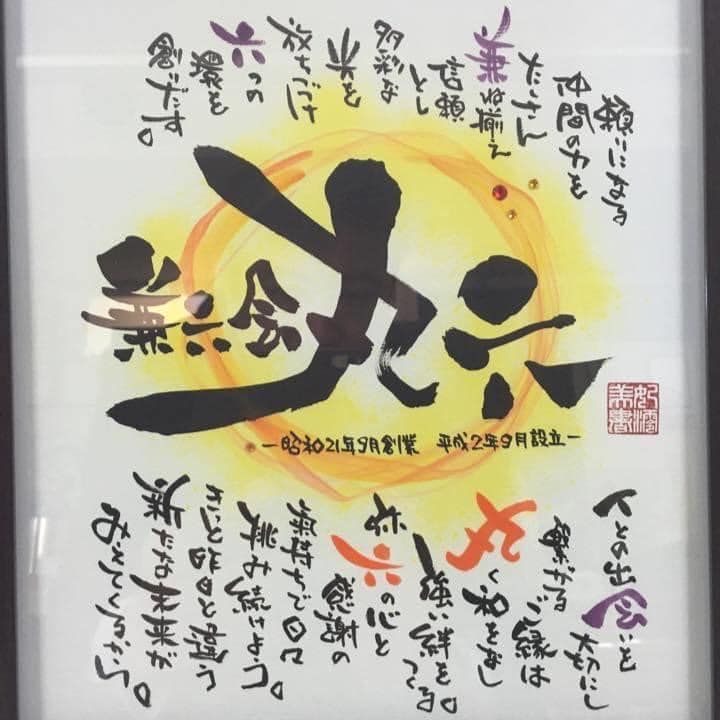 になる
仲間の力を
たくさん
兼ね揃え
信頼
とし
多彩な
光を
放ちつづけ
六つの
環を
創りだす。
六
丸
会
六
兼
ー昭和21年9月創業 平成2年9月設立ー
人との出会いを
大切にし
繋がる
ご縁は
丸く和をなし
強い絆を
つくる。
六の心と
感謝の
気持ちで日々
歩み続けよう。
きっと昨日と違う
新たな未来が
みえてくるから。